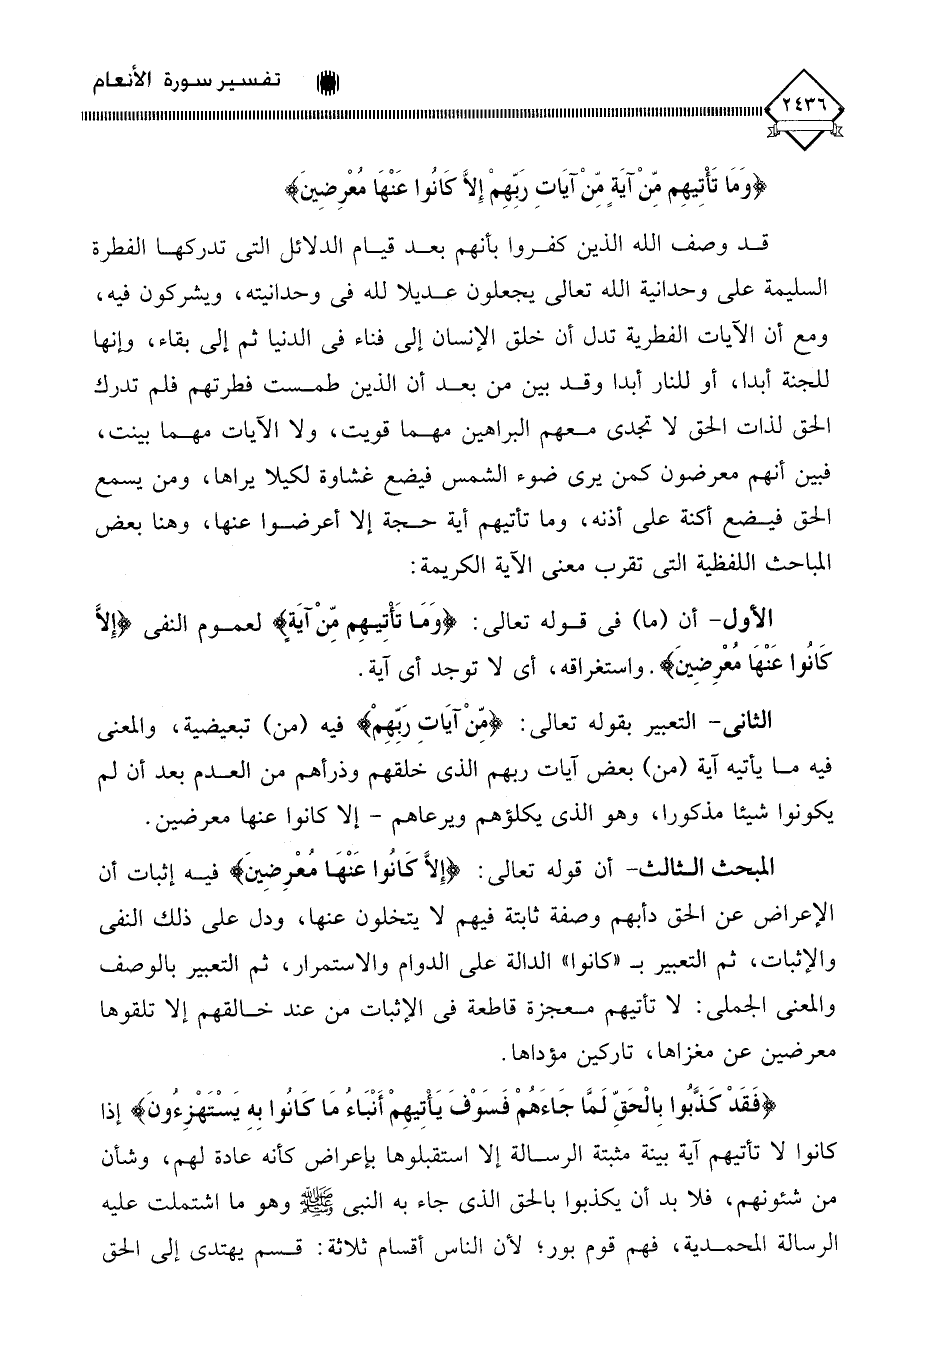 تفسير سورة الأنعام
٢٤٣٦
﴿وَمَا تَأْتِيهِم مِّنْ آيَةٍ مِّنْ آيَاتِ رَبِّهِمْ إِلاَّ كَانُوا عَنْهَا مُعْرِضِينَ﴾
قد وصف الله الذين كفروا بأنهم بعد قيام الدلائل التى تدركها الفطرة
السليمة على وحدانية الله تعالى يجعلون عديلا لله فى وحدانيته، ويشركون فيه،
ومع أن الآيات الفطرية تدل أن خلق الإنسان إلى فناء فى الدنيا ثم إلى بقاء، وإنها
للجنة أبدا، أو للنار أبدا وقد بين من بعد أن الذين طمست فطرتهم فلم تدرك
الحق لذات الحق لا تجدى معهم البراهين مهما قويت، ولا الآيات مهما بينت،
فبين أنهم معرضون كمن يرى ضوء الشمس فيضع غشاوة لكيلا يراها، ومن يسمع
الحق فيضع أكنة على أذنه، وما تأتيهم أية حجة إلا أعرضوا عنها، وهنا بعض
المباحث اللفظية التى تقرب معنى الآية الكريمة:
الأول- أن (ما) فى قوله تعالى: ﴿وَمَا تَأْتِيهِم مِّنْ آيَةٍ﴾ لعموم النفى ﴿إِلاَّ
كَانُوا عَنْهَا مُعْرِضِينَ﴾. واستغراقه، أى لا توجد أى آية.
الثانى- التعبير بقوله تعالى: ﴿مِّنْ آيَاتِ رَبِّهِمْ﴾ فيه (من) تبعيضية، والمعنى
فيه ما يأتيه آية (من) بعض آيات ربهم الذى خلقهم وذرأهم من العدم بعد أن لم
يكونوا شيئا مذكورا، وهو الذى يكلؤهم ويرعاهم - إلا كانوا عنها معرضين.
المبحث الثالث- أن قوله تعالى: ﴿إِلاَّ كَانُوا عَنْهَا مُعْرِضِينَ﴾ فيه إثبات أن
الإعراض عن الحق دأبهم وصفة ثابتة فيهم لا يتخلون عنها، ودل على ذلك النفى
والإثبات، ثم التعبير بـ «كانوا» الدالة على الدوام والاستمرار، ثم التعبير بالوصف
والمعنى الجملى: لا تأتيهم معجزة قاطعة فى الإثبات من عند خالقهم إلا تلقوها
معرضين عن مغزاها، تاركين مؤداها.
﴿فَقَدْ كَذَّبُوا بِالْحَقِّ لَمَّا جَاءَهُمْ فَسَوْفَ يَأْتِيهِمْ أَنْبَاءُ مَا كَانُوا بِهِ يَسْتَهْزِءُونَ﴾ إذا
كانوا لا تأتيهم آية بينة مثبتة الرسالة إلا استقبلوها بإعراض كأنه عادة لهم، وشأن
من شئونهم، فلا بد أن يكذبوا بالحق الذى جاء به النبى ﷺ وهو ما اشتملت عليه
الرسالة المحمدية، فهم قوم بور؛ لأن الناس أقسام ثلاثة: قسم يهتدى إلى الحق